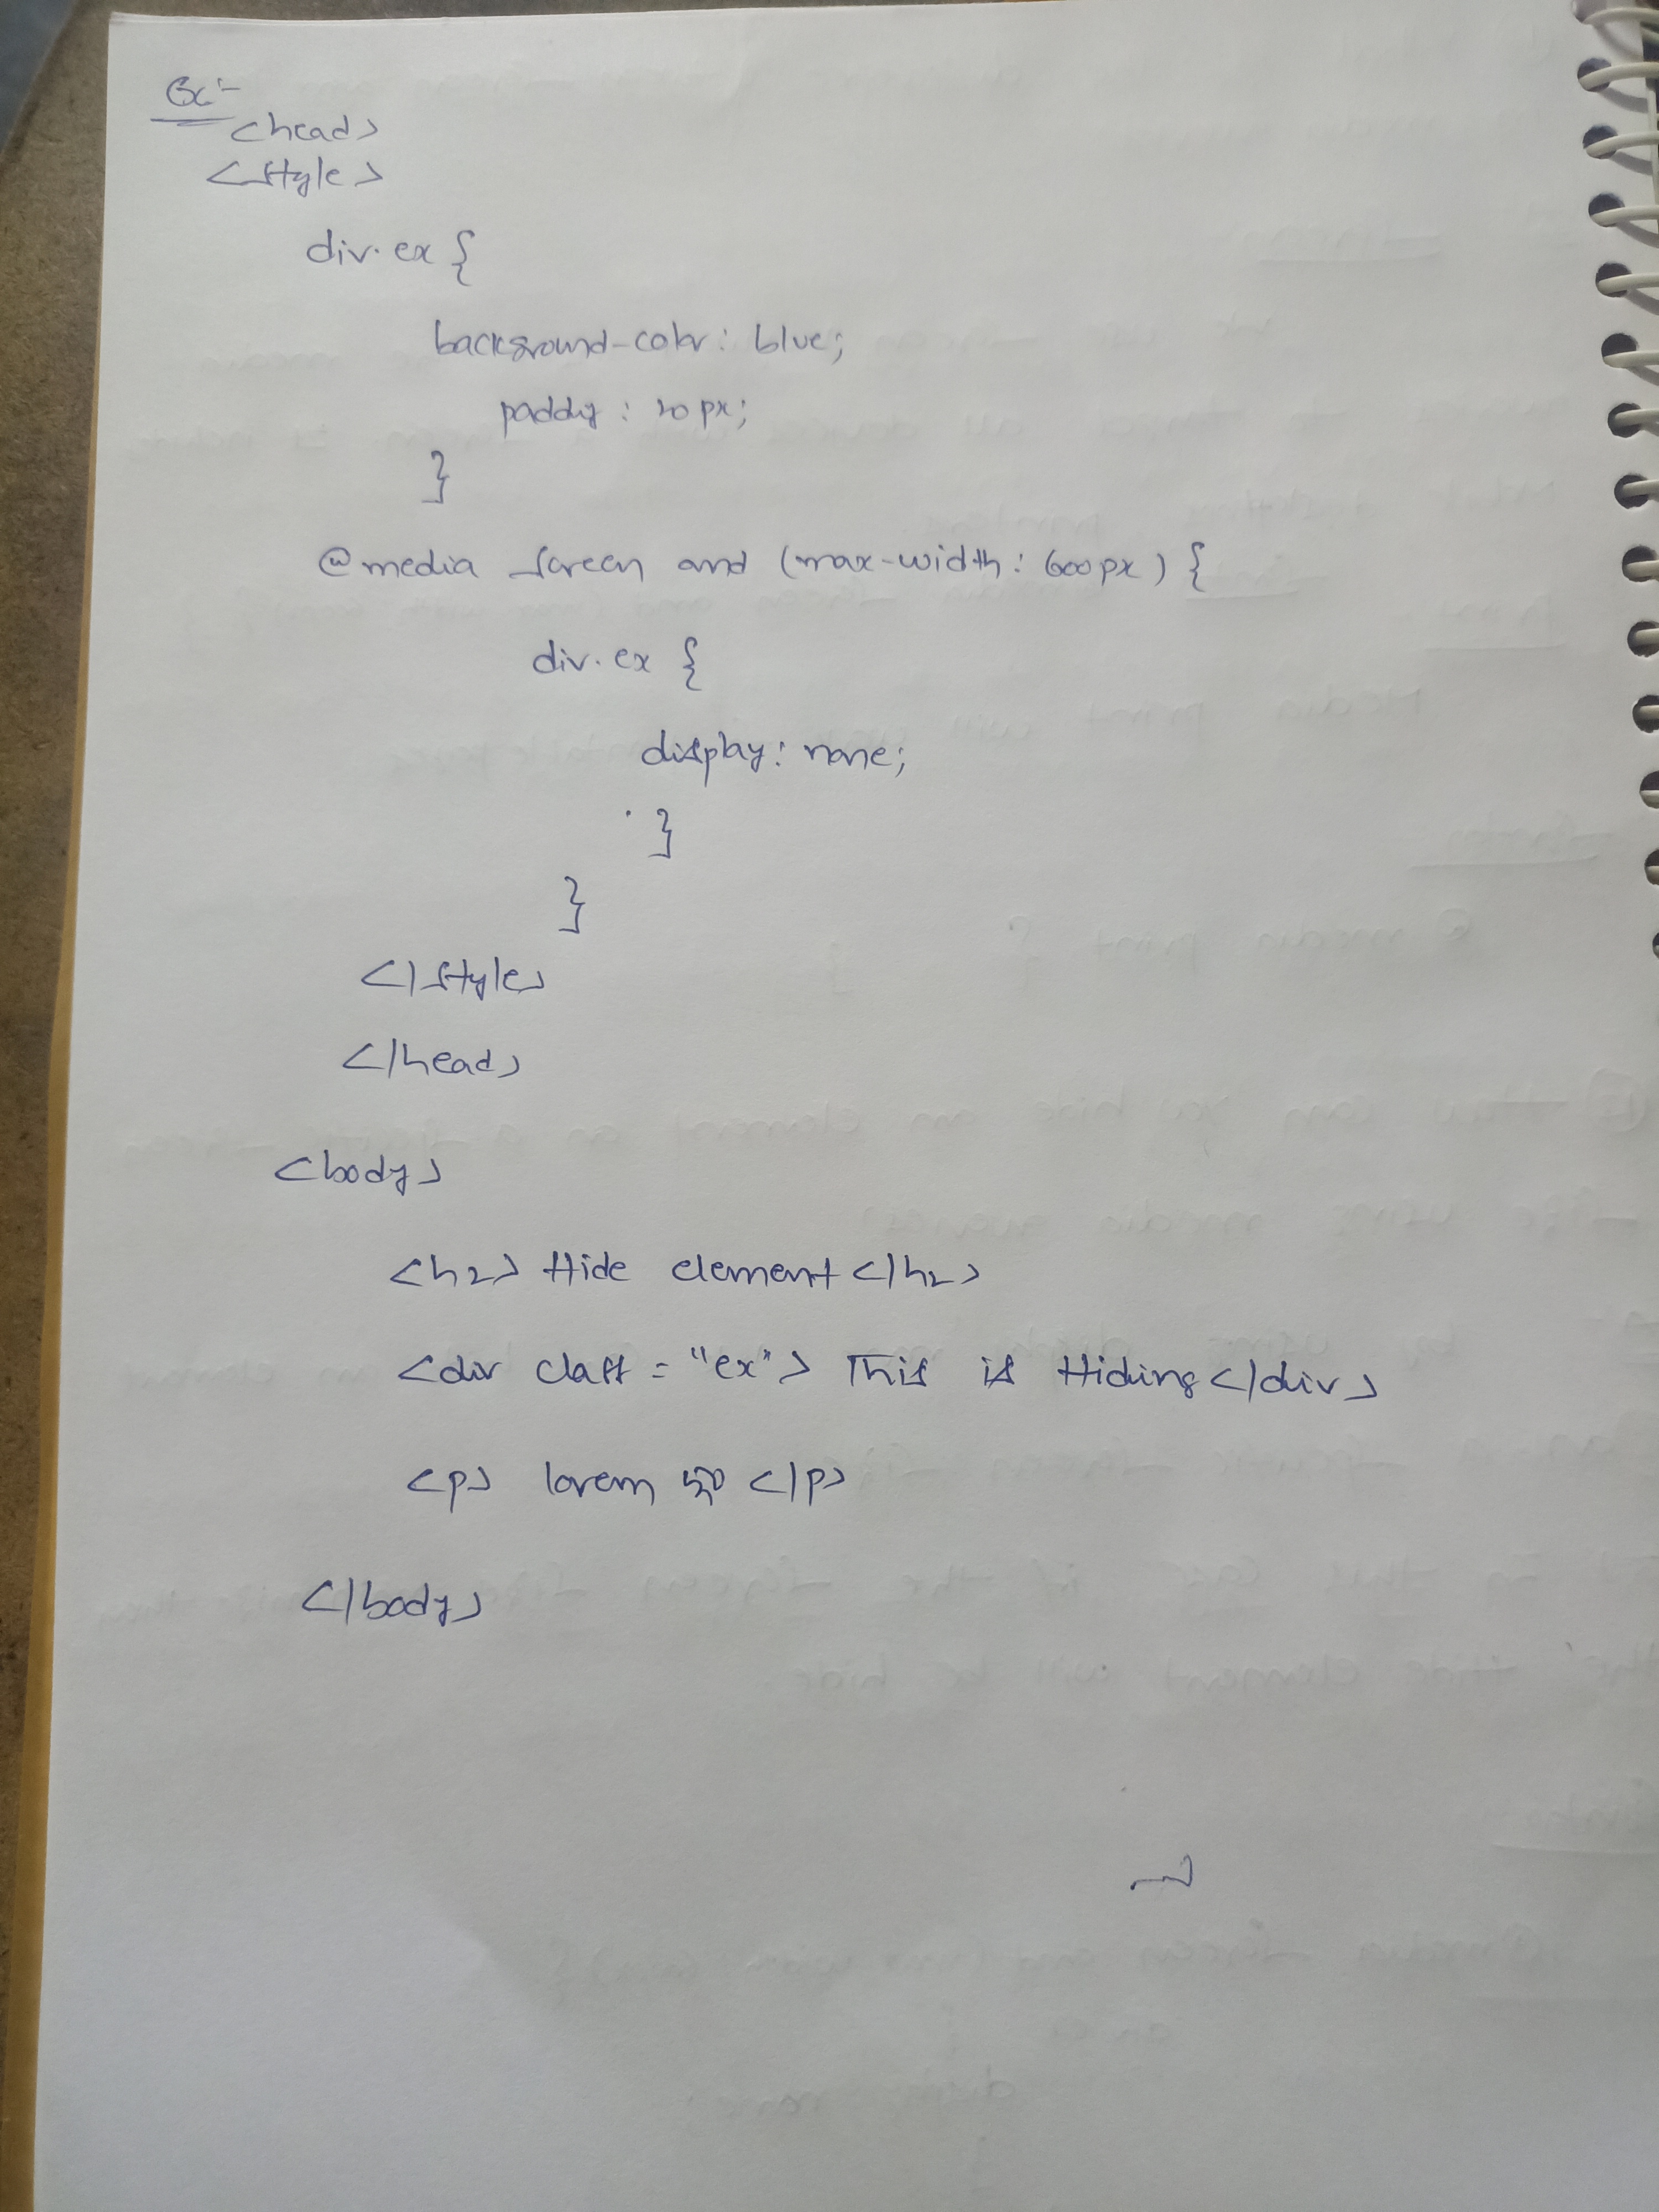 Ex:-
<head>
<style>
div.ex {
background-color: blue;
padding: 20px;
}
@media screen and (max-width: 600px) {
div.ex {
display: none;
}
}
</style>
</head>
<body>
<h2> Hide element </h2>
<div class = "ex"> This is Hiding </div>
<p> lorem </p>
</body>